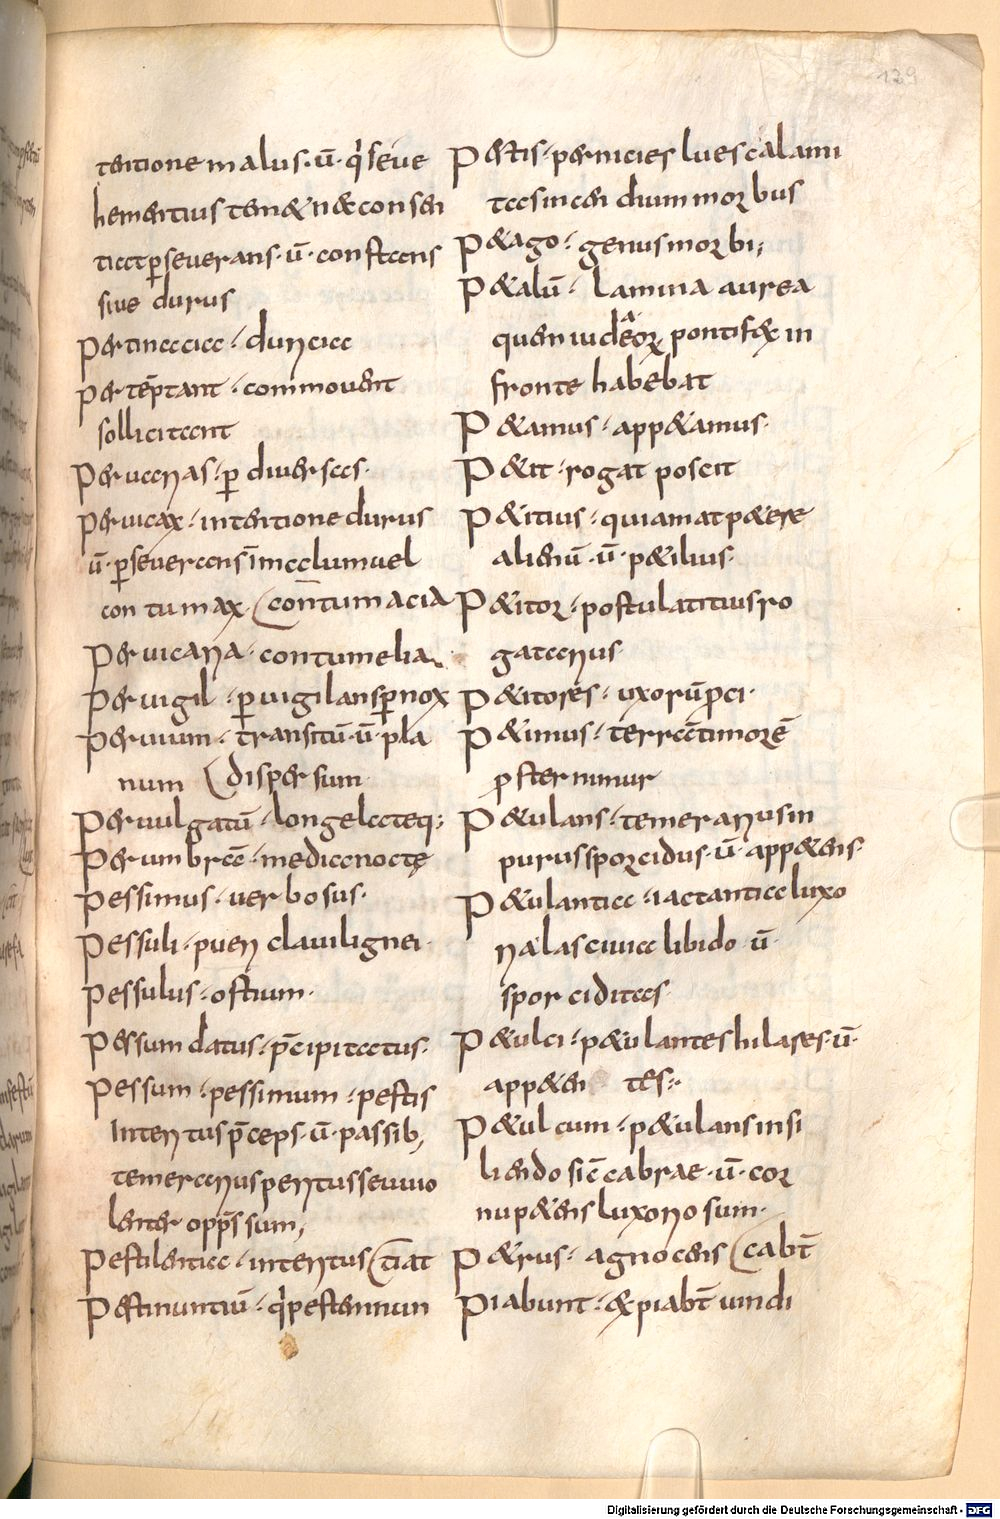 129
tentione malus · ū · q̇ seue
hementius tenet n̄ et consen
tiat p̄severans · ū · constans
sive durus
Pertinacia · duricia
Pertēptant · commovent
sollicitant
Peruarias · ꝑ diversas ·
Pervicax · intentione durus
ū · ꝑseverans īmalum vel
contumax (contumacia
Pervicaria · contumelia
Pervigil · ꝑ vigilans ꝑnox
Pervium · transitū · ū · pla
num (dispersum
Pervulgatū · longelateq;
Perumbrā · medianocte
Pessimus · verbosus ·
Pessuli · pueri clavi lignei ·
Pessulus · ostium ·
Pessumdatus · p̄cipitatus ·
Pessum · pessimum · pestis
Interitus p̄ceps · ū · passib;
temerarius peritus sevivio
lenter opp̄ssum;
Pestilentia · interitus (tiat
Pestinuntiū · q̇ pestem nun
Pestis · pernicies lues calami
tas incendium morbus
Petago · genus morbi;
Petalū · lamina aurea
quem iudeoꝝ pontifex in
fronte habebat
Petamus · appetamus ·
Petit · rogat poscit
Petitius · qui amat petere
alienū · ū · petilius ·
Petitor · postulatitius ro
gatarius ·
Petitores · uxorū p̄ci ·
Petimus · terrā timorē
ꝓsternimur
Petulans · temerarius in
purus sporcidus · ū · appetens ·
Petulantia · iactantia luxo
ria lascivia libido · ū ·
sporciditas ·
Petulci · petulantes hilares · ū ·
appeten tes ·
Petulcum · petulans insi
liendo sic cabrae · ū · cor
nu petens luxoriosum ·
Petrus · agnocens (cabt̄
Piabunt · et piabt̄ vindi
Digitalisierung gefördert durch die Deutsche Forschungsgemeinschaft - DFG